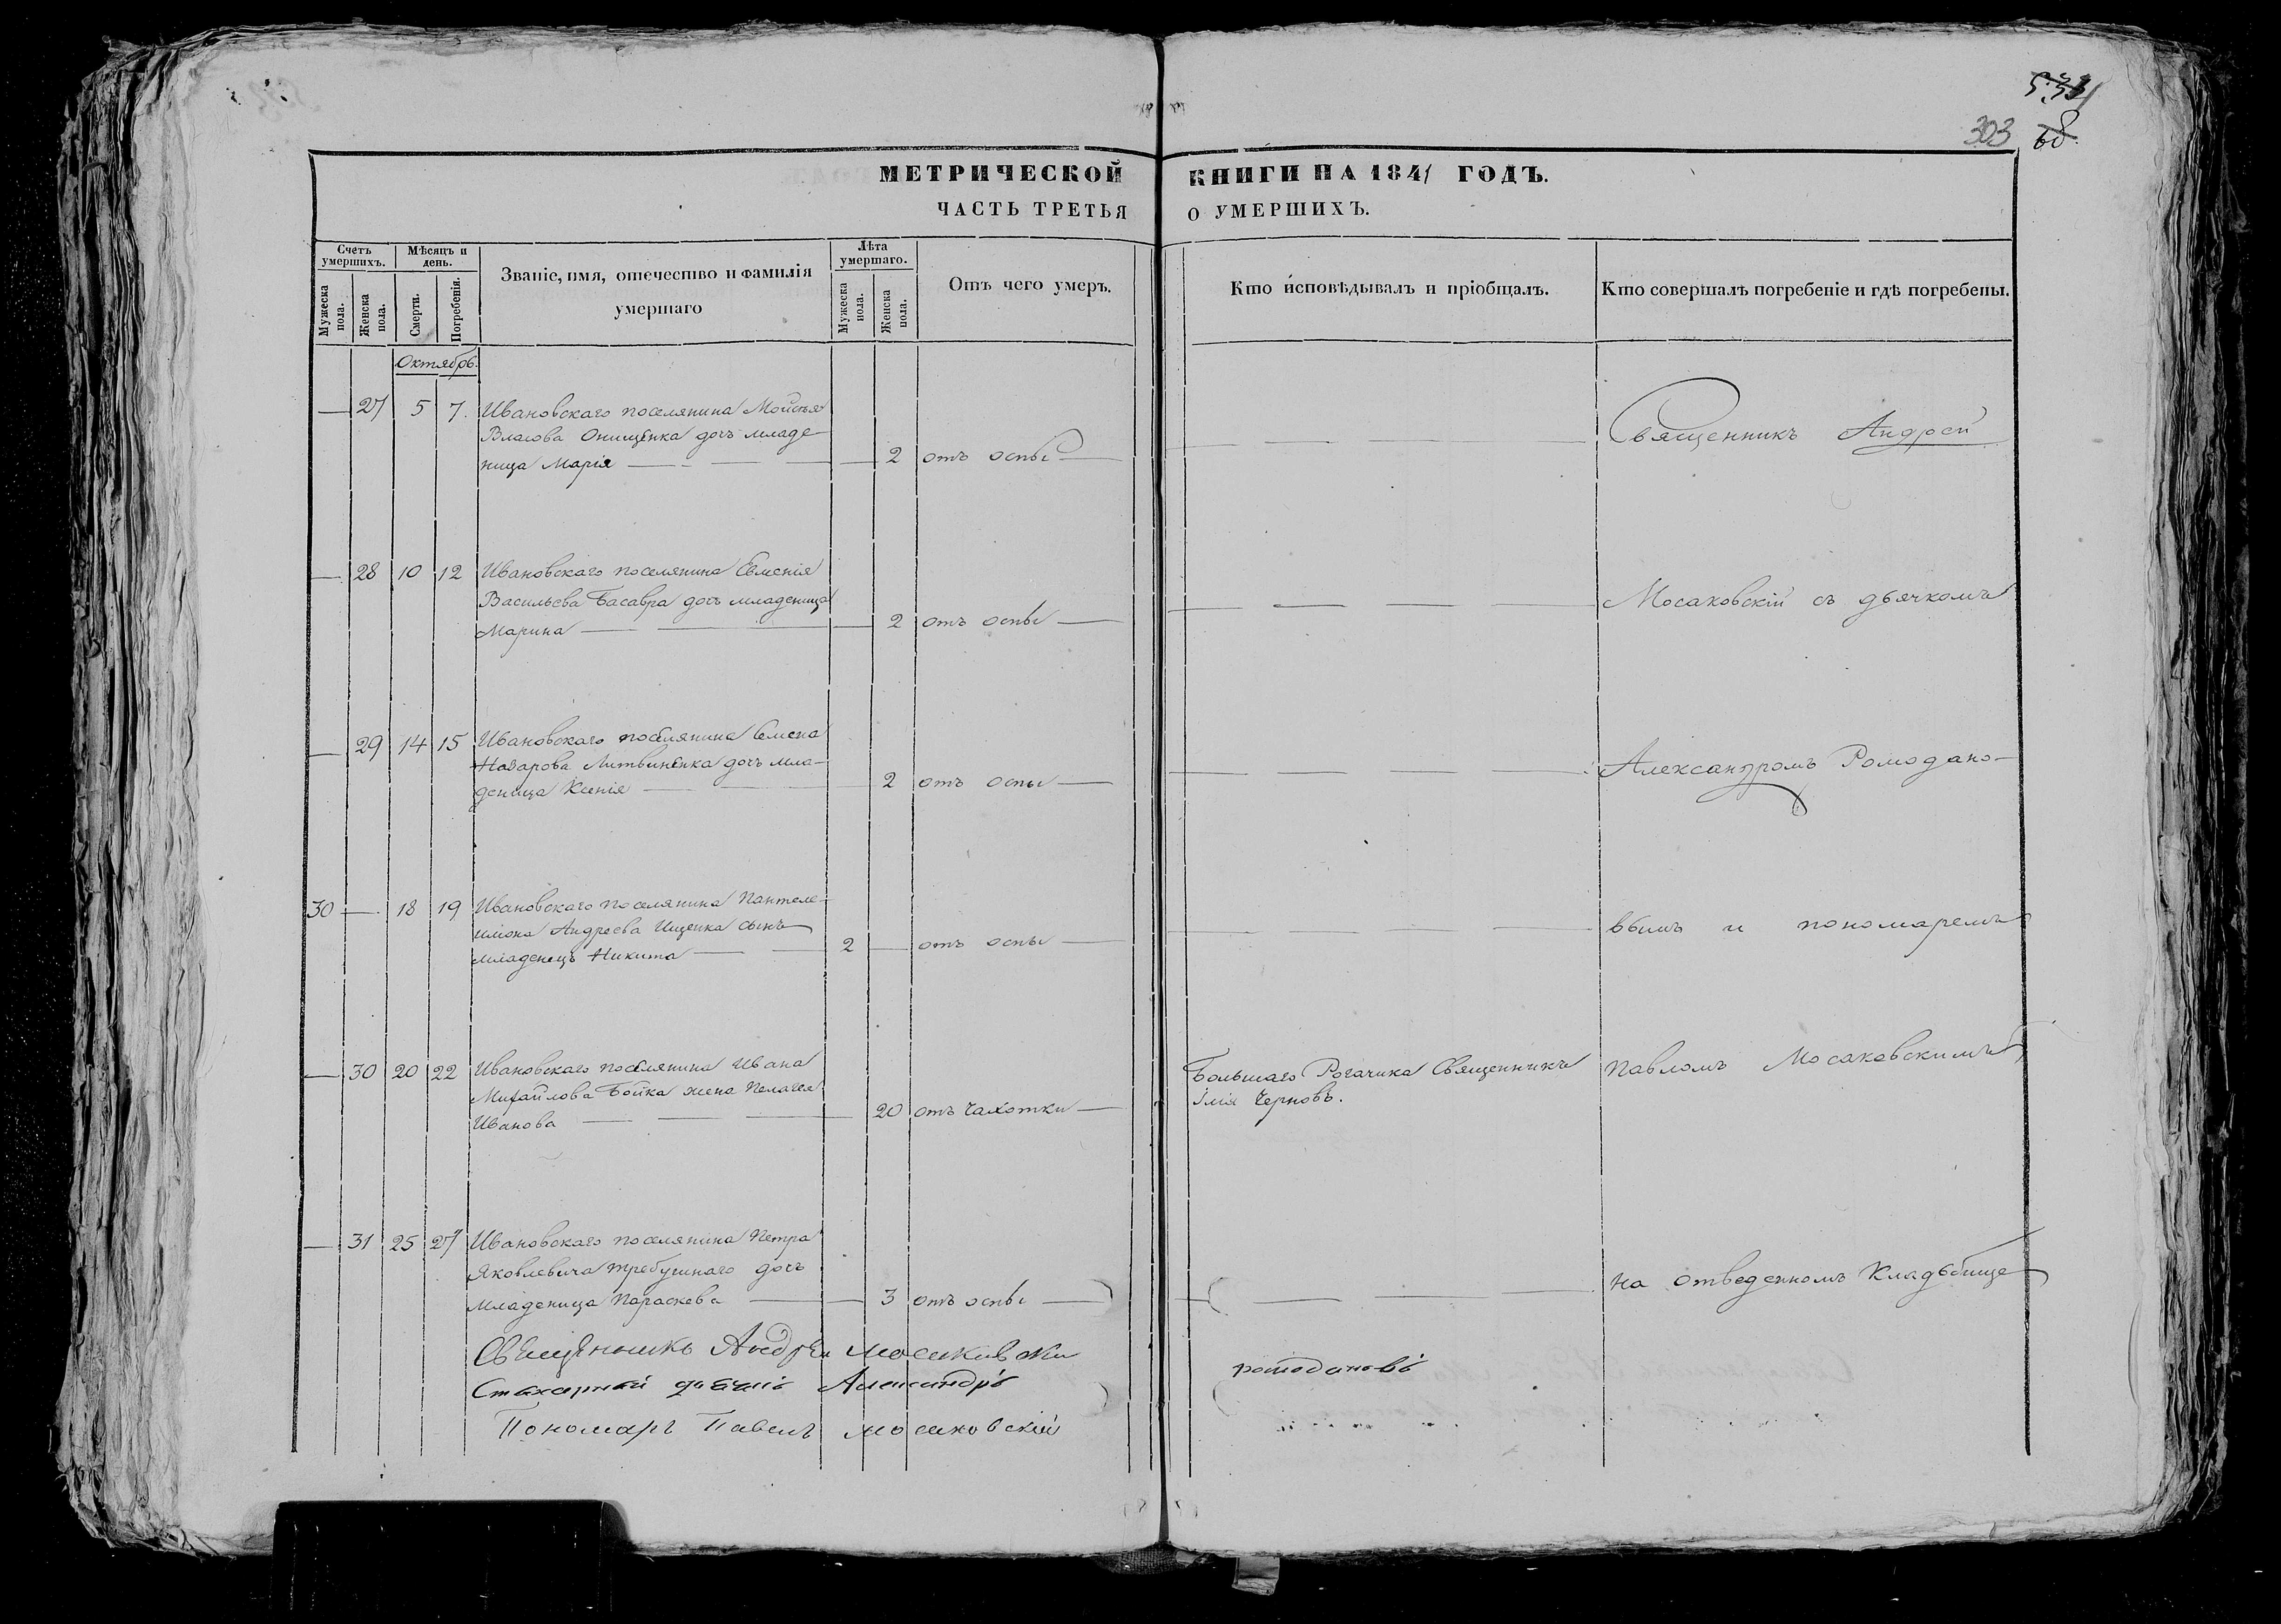 533
303 68
МЕТРИЧЕСКОЙ КНИГИ НА 1841 ГОДЪ.
ЧАСТЬ ТРЕТЬЯ О УМЕРШИХЪ.
Счетъ умершихъ.
Мужеска пола.
Женска пола.
Мѣсяцъ и день.
Смерти.
Погребенія.
Званіе, имя, отечество и фамилія
умершаго
Лѣта умершаго.
Мужеска пола.
Женска пола.
Отъ чего умеръ.
Кто исповѣдывалъ и пріобщалъ.
Кто совершалъ погребеніе и гдѣ погребены.
Октябрь.
— 27 5 7. Ивановскаго поселянина Моисея
Власова Онищенка дочь младе-
ница Марія — 2 отъ оспы —
Священникъ Андрей
— 28 10 12 Ивановскаго поселянина Евменія
Васильева Басавра дочь младеница
Марина — 2 отъ оспы —
Мосаковскій съ дьячкомъ
— 29 14 15 Ивановскаго поселянина Семена
Назарова Литвиненка дочь мла-
деница Ксенія — 2 отъ оспы —
Александромъ Ромодано-
30 — 18 19 Ивановскаго поселянина Пантеле-
имона Андреева Ищенка сынъ
младенецъ Никита — 2 — отъ оспы —
вымъ и пономаремъ
— 30 20 22 Ивановскаго поселянина Ивана
Михайлова Бойка жена Пелагея
Иванова — 20 отъ чахотки —
Большаго Рогачика Священникъ
Илія Черновъ.
Павломъ Мосаковскимъ
— 31 25 27 Ивановскаго поселянина Петра
Яковлевича Требушнаго дочь
младеница Параскева — 3 отъ оспы —
на отведенномъ Кладбище
Священникъ Андрей Мосаковски
Стихарный дьячикъ Александръ ромодановъ
Пономарь Павелъ Мосаковскій